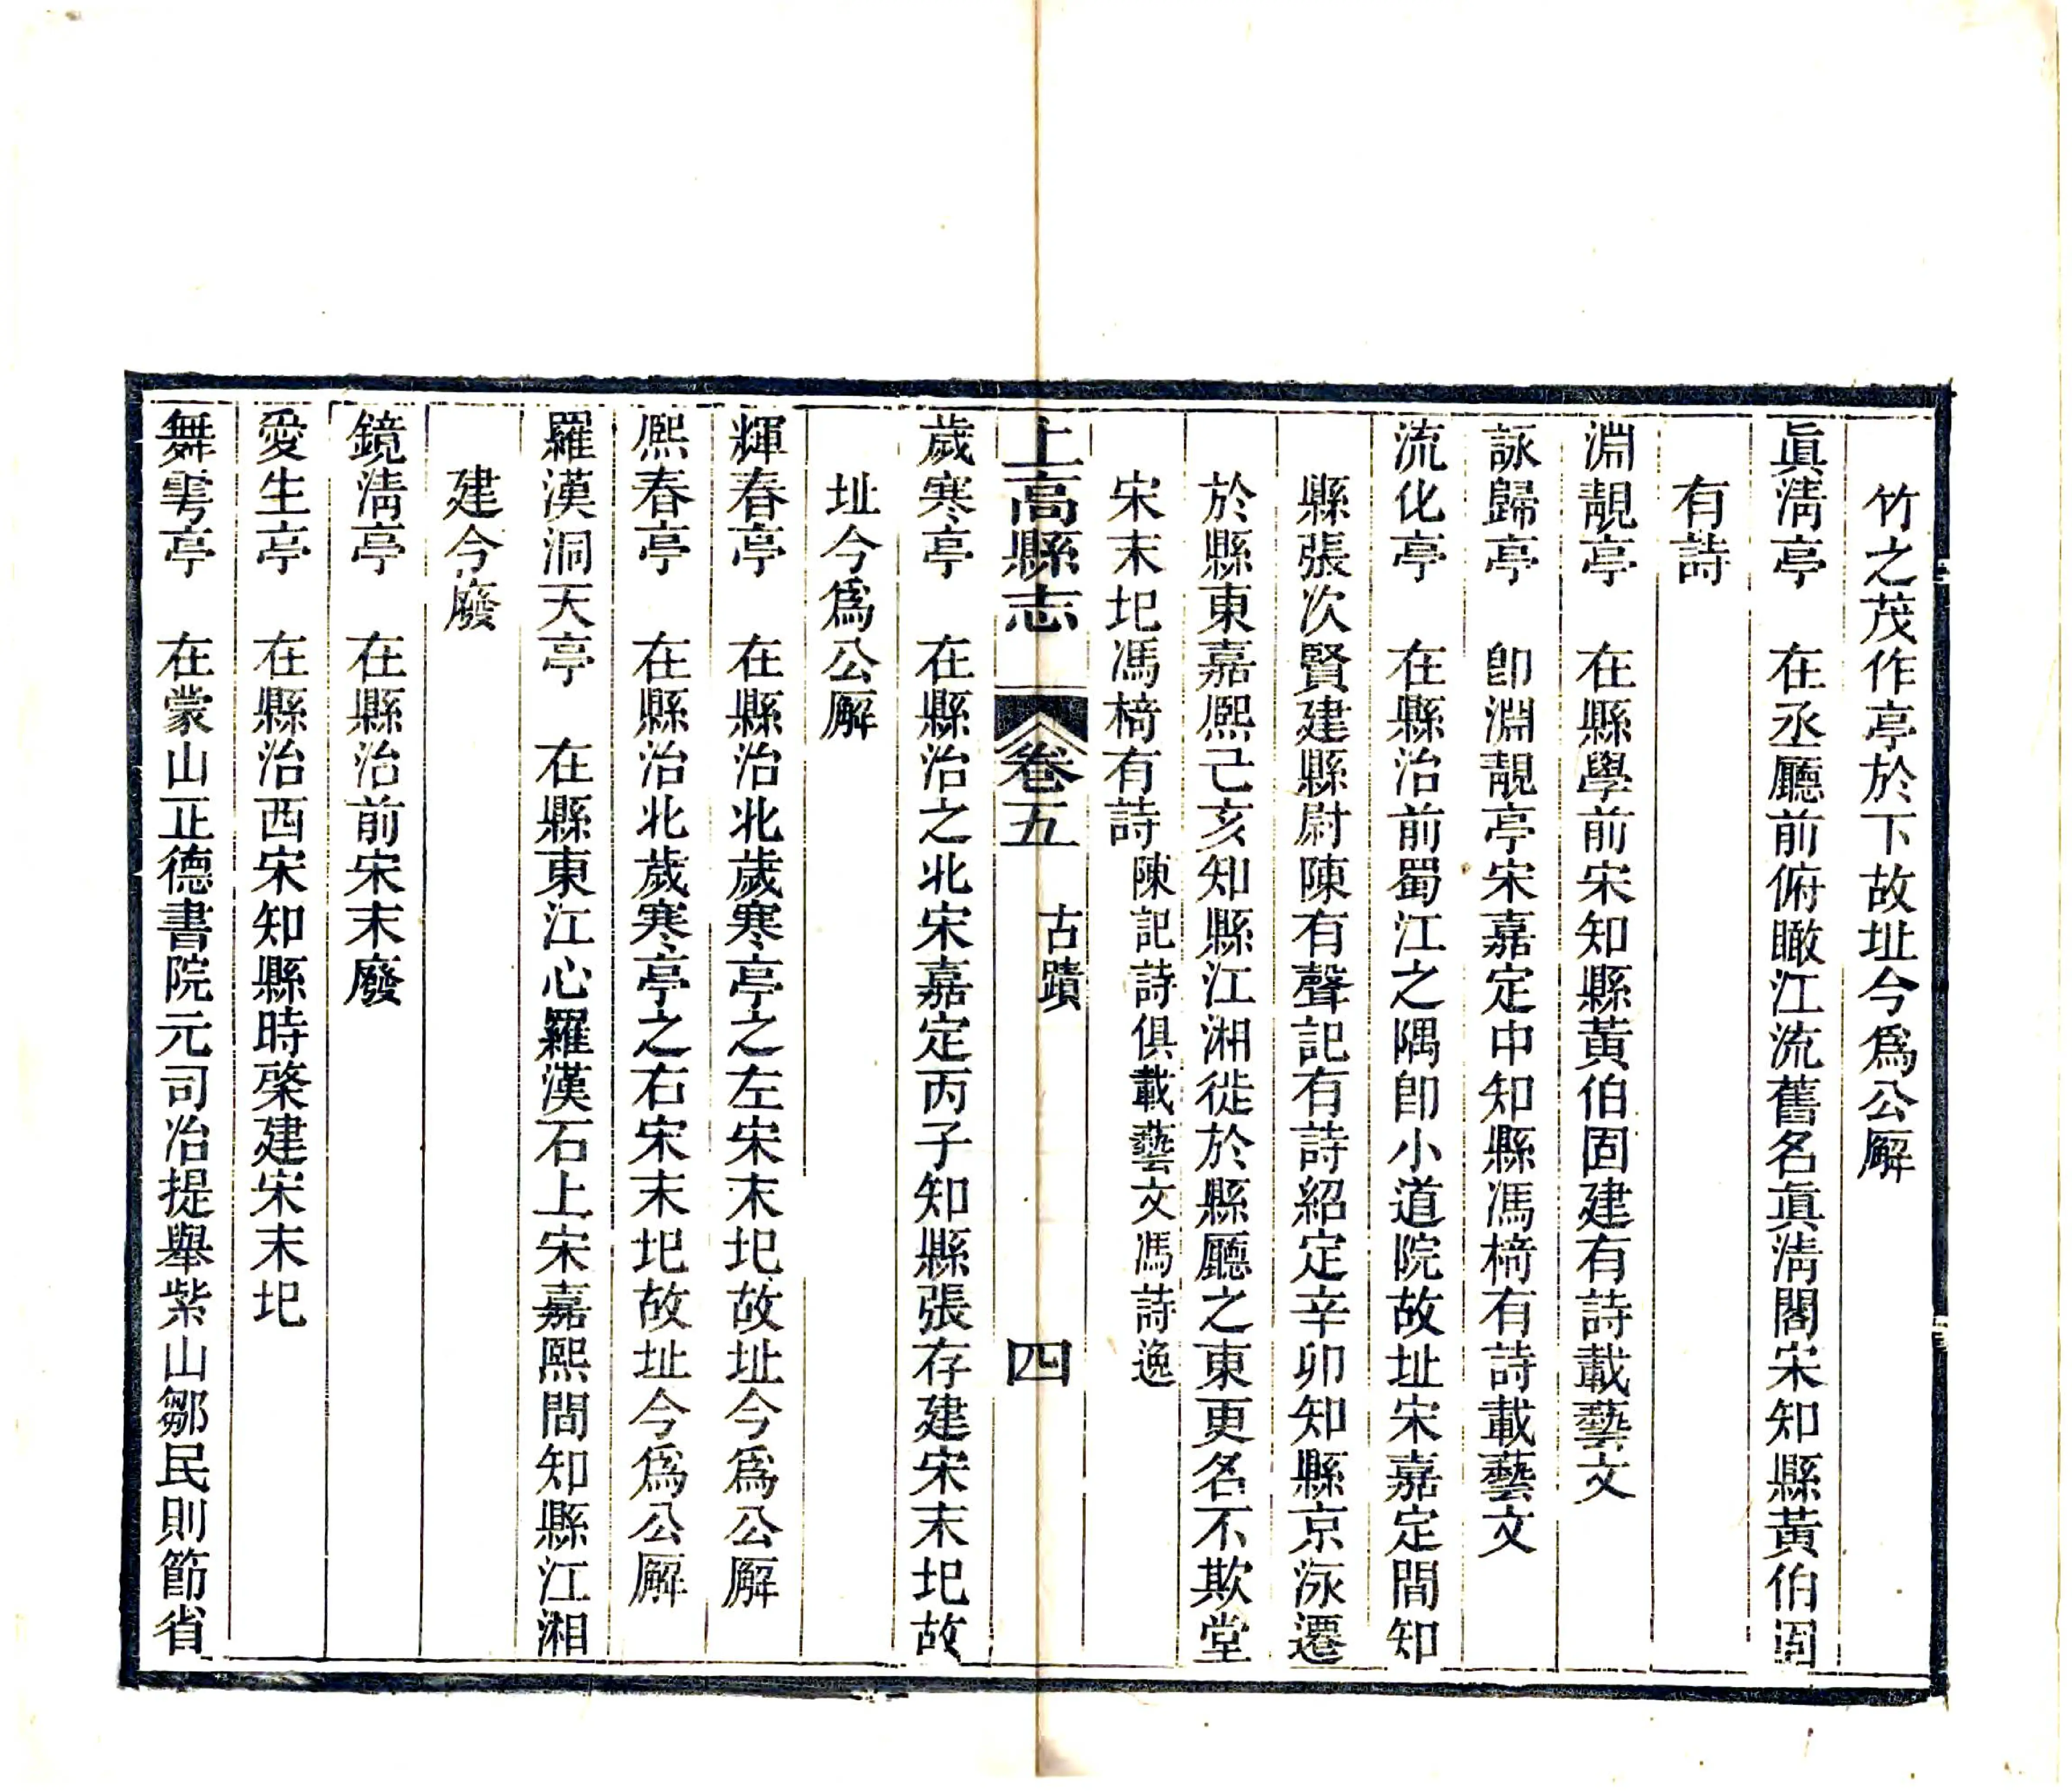 竹之茂作亭於下故址今爲公廨
眞淸亭　在丞廳前俯瞰江流舊名眞淸閣宋知縣黃伯固
有詩
淵靚亭　在縣學前宋知縣黃伯固建有詩載藝文
詠歸亭　卽淵靚亭宋嘉定中知縣馮椅有詩載藝文
流化亭　在縣治前蜀江之隅卽小道院故址宋嘉定間知
縣張次賢建縣尉陳有聲記有詩紹定辛卯知縣京泳遷
於縣東嘉熙己亥知縣江湘徙於縣廳之東更名不欺堂
宋末圯馮椅有詩陳記詩俱載藝文馮詩逸
上高縣志　卷五　古蹟　四
歲寒亭　在縣治之北宋嘉定丙子知縣張存建宋末圯故
址今爲公廨
輝春亭　在縣治北歲寒亭之左宋末圯故址今爲公廨
熙春亭　在縣治北歲寒亭之右宋末圯故址今爲公廨
羅漢洞天亭　在縣東江心羅漢石上宋嘉熙間知縣江湘
建今廢
鏡淸亭　在縣治前宋末廢
愛生亭　在縣治西宋知縣時棨建宋末圯
舞雩亭　在蒙山正德書院元司冶提舉紫山鄒民則節省